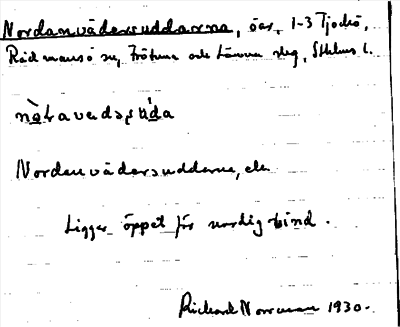 Nordanväderuddarna, öar, 1-3 Tjockö,
Rådmansö sn, Frötuna och Länna slg, Sthlms l.
Nordanvädersuddarne, eln
Ligger öppet för nordig vind.
Richard Norrman 1930.